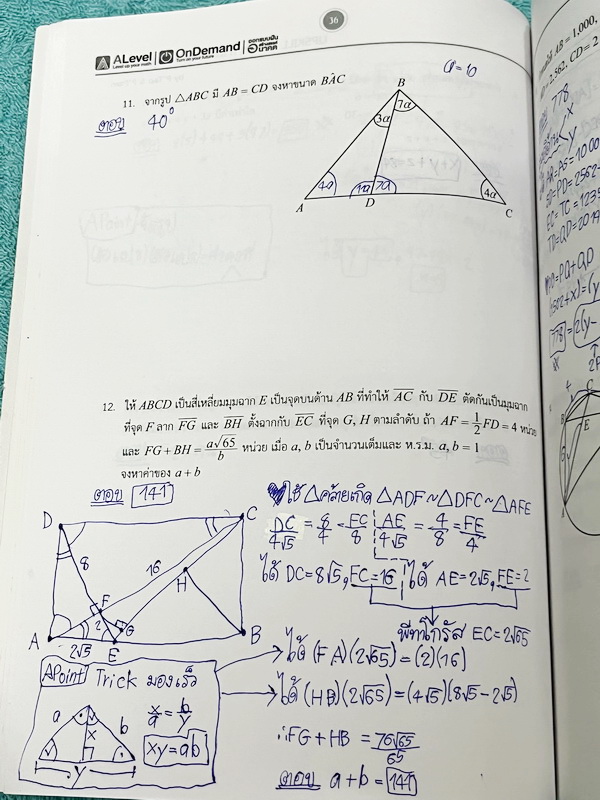 36
ALevel OnDemand ออกแบบฝัน
Level up your math Turn on your future
11. จากรูป △ABC มี AB = CD จงหาขนาด BÂC
ตอบ 40°
B
7α
3α
4α
7α
4α
A D C
12. ให้ ABCD เป็นสี่เหลี่ยมมุมฉาก E เป็นจุดบนด้าน AB ที่ทำให้ AC กับ DE ตัดกันเป็นมุมฉาก
ที่จุด F ลาก FG และ BH ตั้งฉากกับ EC ที่จุด G, H ตามลำดับ ถ้า AF = 1/2 FD = 4 หน่วย
และ FG + BH = a√65/b หน่วย เมื่อ a, b เป็นจำนวนเต็มและ ห.ร.ม. a, b = 1
จงหาค่าของ a + b
ตอบ 141
ใช้ △คล้ายเกิด △ADF ~ △DFC ~ △AFE
DC/4√5 = 8/4 = FC/8 AE/4√5 = 4/8 = FE/4
ได้ DC = 8√5, FC = 16 ได้ AE = 2√5, FE = 2
พีทาโกรัส EC = 2√65
D C
8 16
H
F
2 G
A E B
2√5
ได้ (FA)(2√65) = (2)(16)
ได้ (HB)(2√65) = (4√5)(8√5 - 2√5)
∴ FG + HB = 76√65/65
ตอบ a + b = 141
APoint Trick มองเร็ว
a x b
y
x/a = b/y
xy = ab